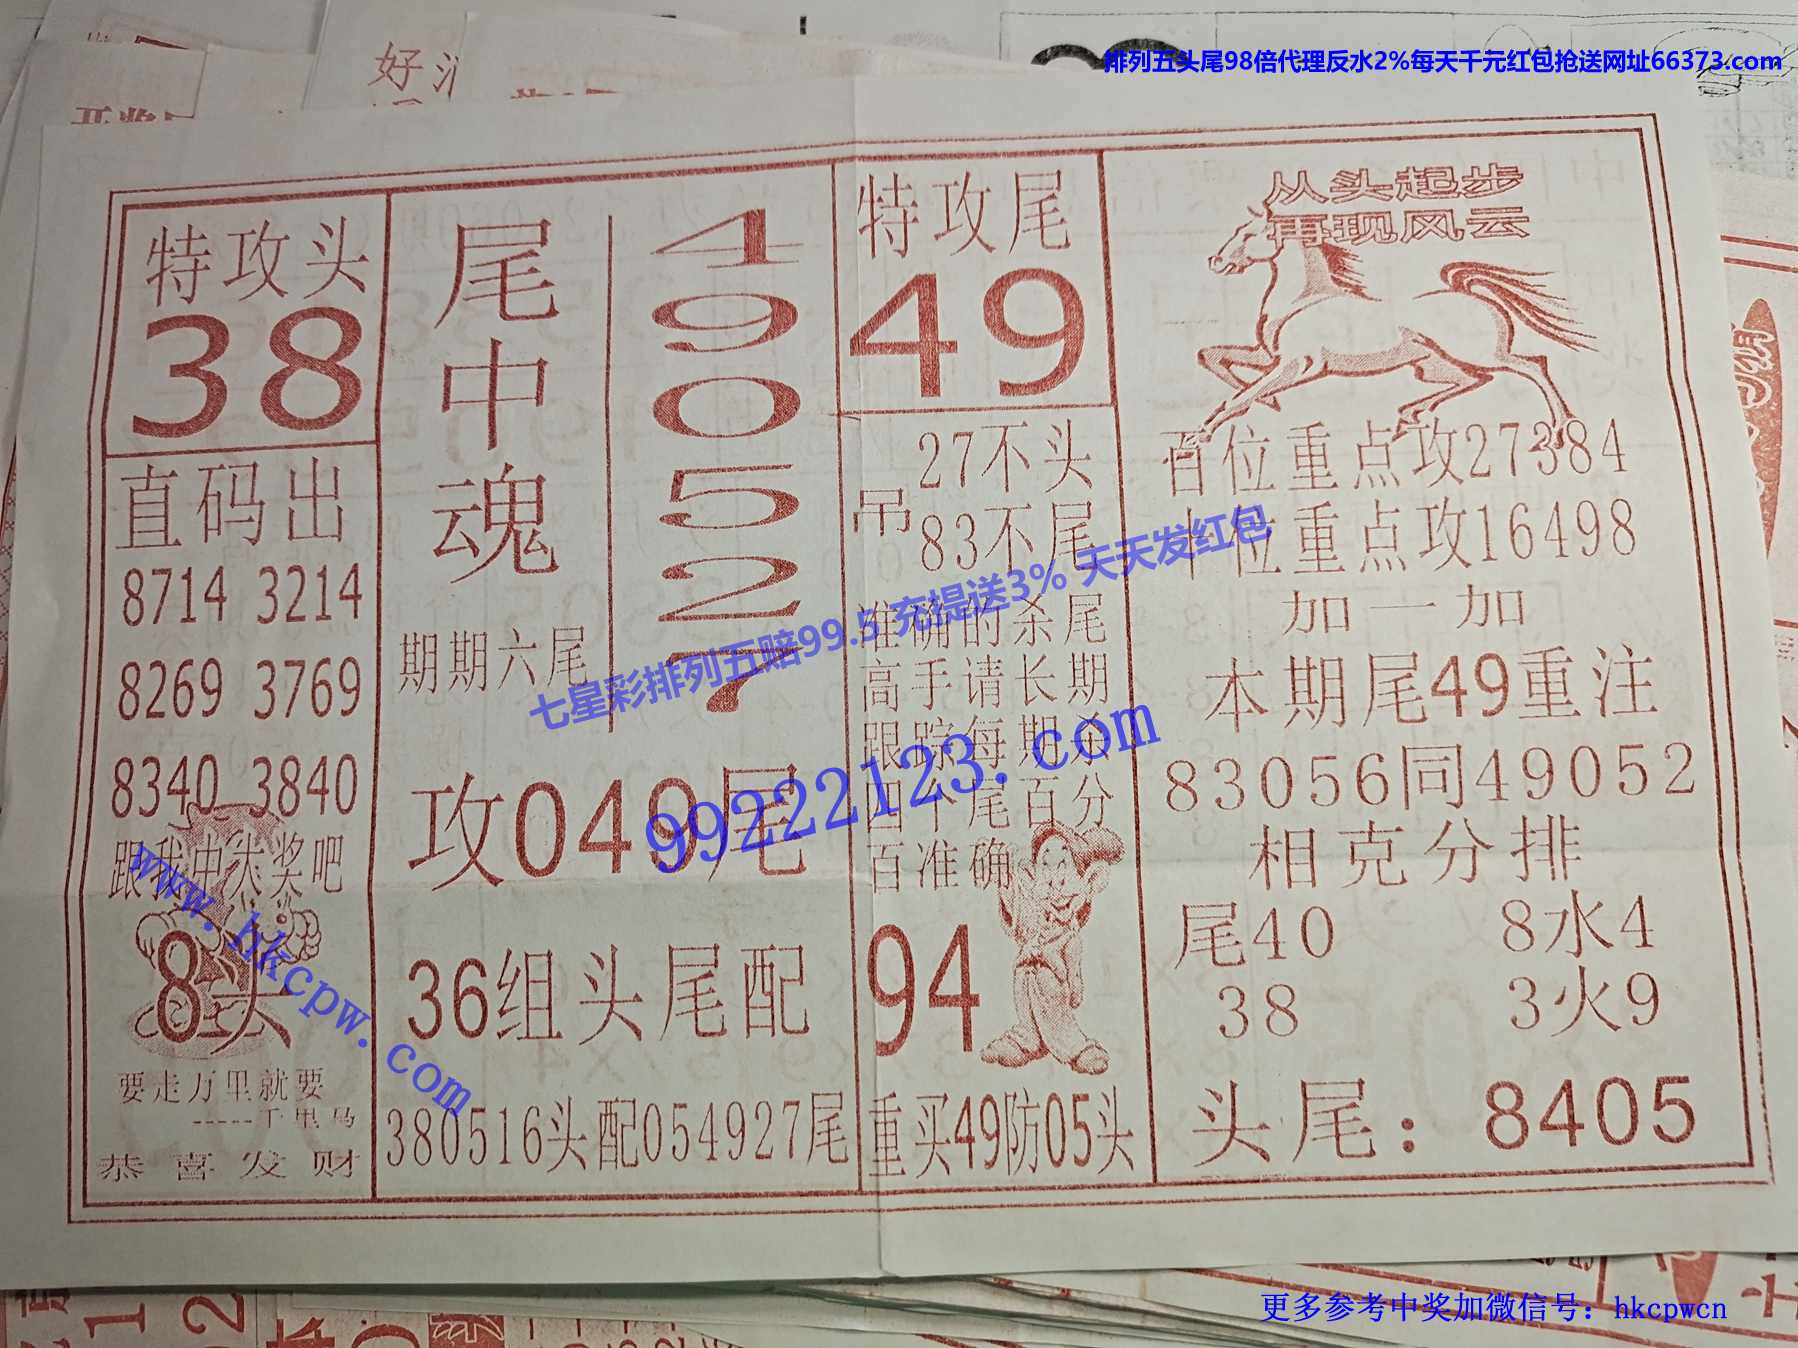 排列五头尾98倍代理反水2%每天千元红包抢送网址66373.com
好
特攻头
38
直码出
8714 3214
8269 3769
8340 3840
跟我中大奖吧
8头
要走万里就要
-----千里马
恭喜发财
尾中魂
期期六尾
490527
攻049尾
36组头尾配
380516头配054927尾
特攻尾
49
吊
27不头
83不尾
准确的杀尾
高手请长期
跟踪每期杀
四个尾百分
百准确
94
重买49防05头
从头起步
再现风云
百位重点攻27384
十位重点攻16498
加一加
本期尾49重注
83056同49052
相克分排
尾40 8水4
38 3火9
头尾：8405
七星彩排列五赔99.5 充提送3% 天天发红包
99222123.com
www.hkcpw.com
更多参考中奖加微信号：hkcpwcn